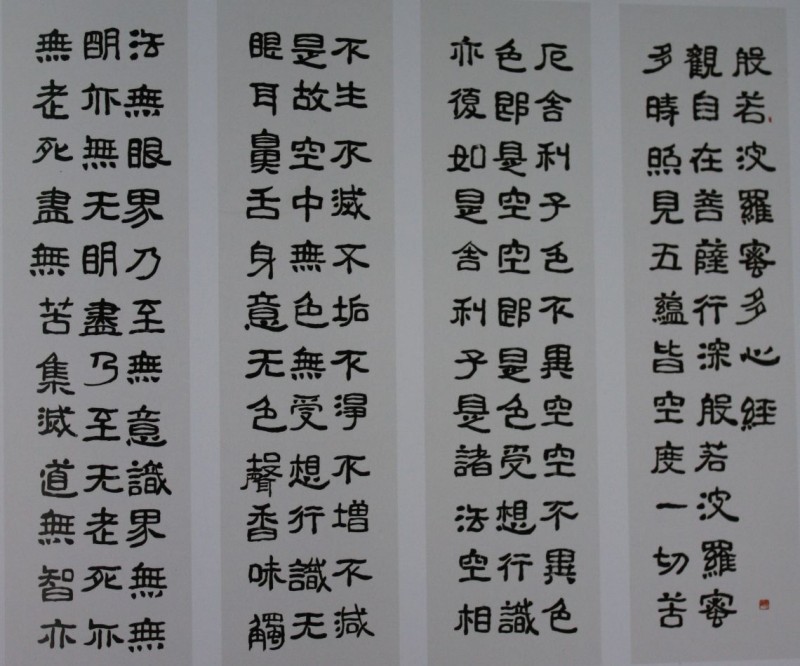 般若波羅蜜多心經
觀自在菩薩行深般若波羅蜜
多時照見五蘊皆空度一切苦
厄舍利子色不異空空不異色
色即是空空即是色受想行識
亦復如是舍利子是諸法空相
不生不滅不垢不淨不增不減
是故空中無色無受想行識无
眼耳鼻舌身意无色聲香味觸
法無眼界乃至無意識界無無
明亦無无明盡乃至无老死亦
無老死盡無苦集滅道無智亦